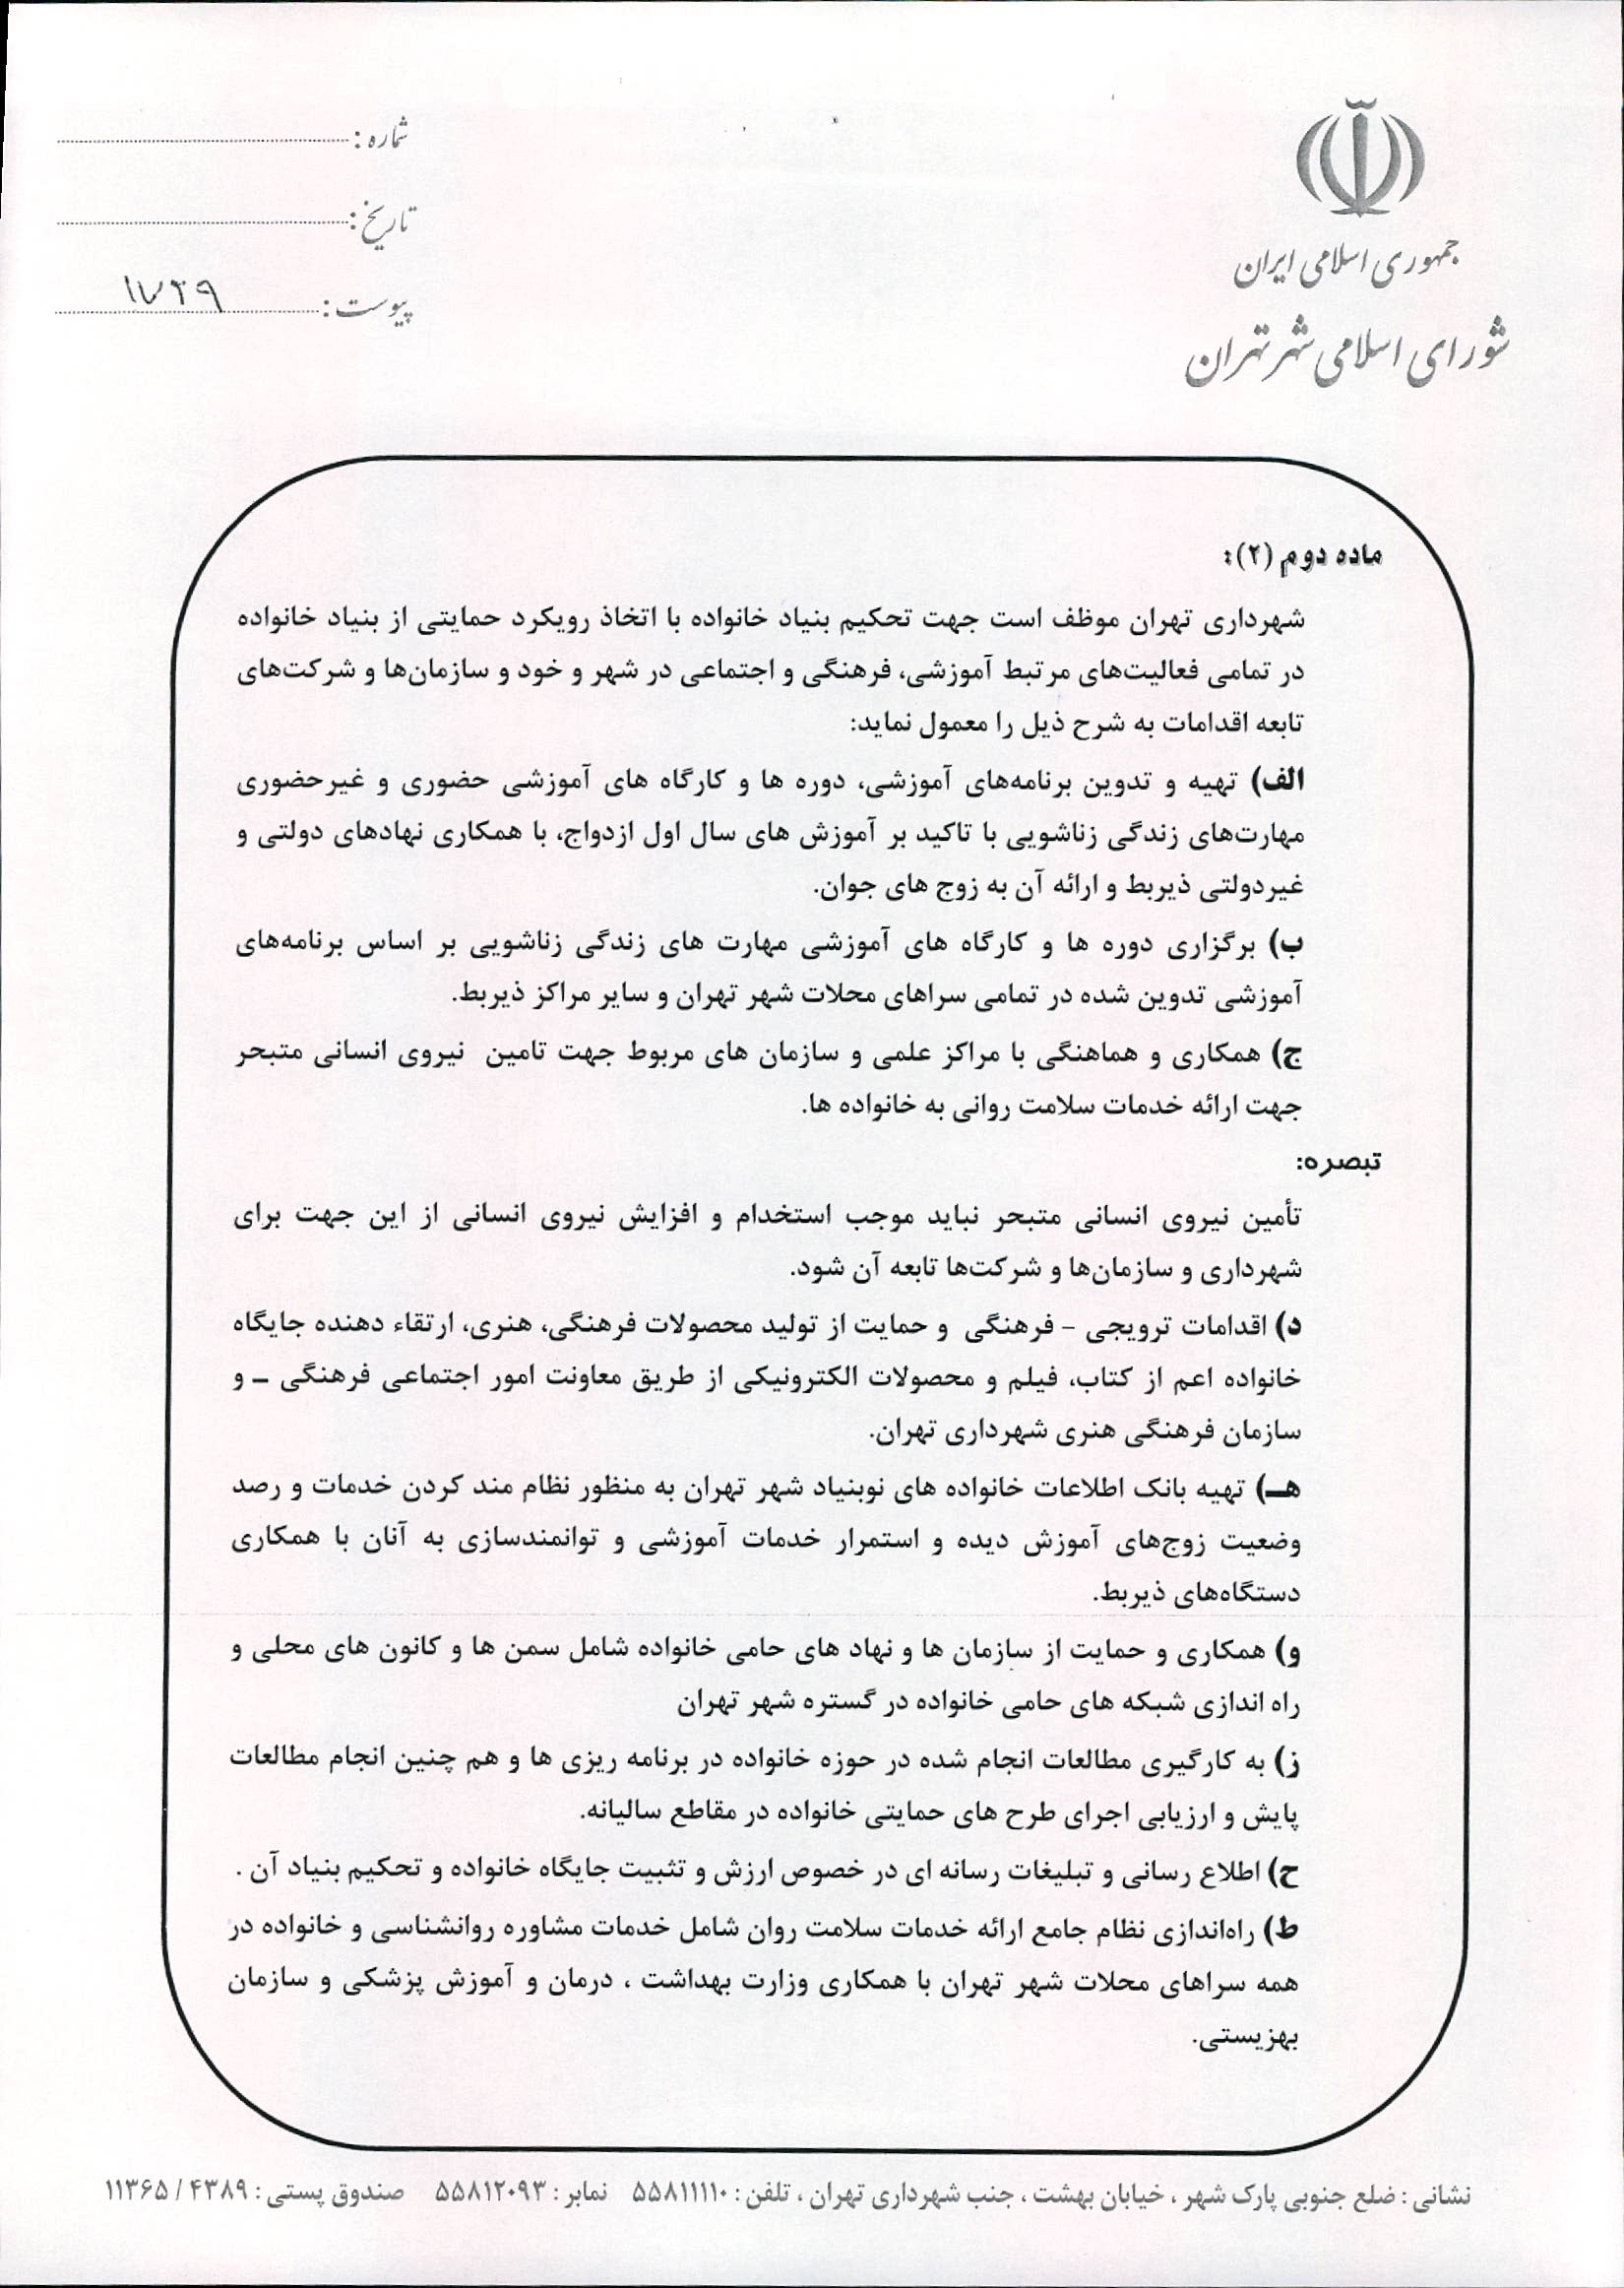 جمهوری اسلامی ایران
شورای اسلامی شهر تهران
شماره :
تاریخ :
پیوست :
ماده دوم (۲):
شهرداری تهران موظف است جهت تحکیم بنیاد خانواده با اتخاذ رویکرد حمایتی از بنیاد خانواده
در تمامی فعالیت‌های مرتبط آموزشی، فرهنگی و اجتماعی در شهر و خود و سازمان‌ها و شرکت‌های
تابعه اقدامات به شرح ذیل را معمول نماید:
الف) تهیه و تدوین برنامه‌های آموزشی، دوره ها و کارگاه های آموزشی حضوری و غیرحضوری
مهارت‌های زندگی زناشویی با تاکید بر آموزش های سال اول ازدواج، با همکاری نهادهای دولتی و
غیردولتی ذیربط و ارائه آن به زوج های جوان.
ب) برگزاری دوره ها و کارگاه های آموزشی مهارت های زندگی زناشویی بر اساس برنامه‌های
آموزشی تدوین شده در تمامی سراهای محلات شهر تهران و سایر مراکز ذیربط.
ج) همکاری و هماهنگی با مراکز علمی و سازمان های مربوط جهت تامین نیروی انسانی متبحر
جهت ارائه خدمات سلامت روانی به خانواده ها.
تبصره:
تأمین نیروی انسانی متبحر نباید موجب استخدام و افزایش نیروی انسانی از این جهت برای
شهرداری و سازمان‌ها و شرکت‌ها تابعه آن شود.
د) اقدامات ترویجی – فرهنگی و حمایت از تولید محصولات فرهنگی، هنری، ارتقاء دهنده جایگاه
خانواده اعم از کتاب، فیلم و محصولات الکترونیکی از طریق معاونت امور اجتماعی فرهنگی ـ و
سازمان فرهنگی هنری شهرداری تهران.
هـ) تهیه بانک اطلاعات خانواده های نوبنیاد شهر تهران به منظور نظام مند کردن خدمات و رصد
وضعیت زوج‌های آموزش دیده و استمرار خدمات آموزشی و توانمندسازی به آنان با همکاری
دستگاه‌های ذیربط.
و) همکاری و حمایت از سازمان ها و نهاد های حامی خانواده شامل سمن ها و کانون های محلی و
راه اندازی شبکه های حامی خانواده در گستره شهر تهران
ز) به کارگیری مطالعات انجام شده در حوزه خانواده در برنامه ریزی ها و هم چنین انجام مطالعات
پایش و ارزیابی اجرای طرح های حمایتی خانواده در مقاطع سالیانه.
ح) اطلاع رسانی و تبلیغات رسانه ای در خصوص ارزش و تثبیت جایگاه خانواده و تحکیم بنیاد آن .
ط) راه‌اندازی نظام جامع ارائه خدمات سلامت روان شامل خدمات مشاوره روانشناسی و خانواده در
همه سراهای محلات شهر تهران با همکاری وزارت بهداشت ، درمان و آموزش پزشکی و سازمان
بهزیستی.
نشانی : ضلع جنوبی پارک شهر ، خیابان بهشت ، جنب شهرداری تهران ، تلفن : ۵۵۸۱۱۱۱۰ نمابر : ۵۵۸۱۲۰۹۳ صندوق پستی : ۴۳۸۹ / ۱۱۳۶۵